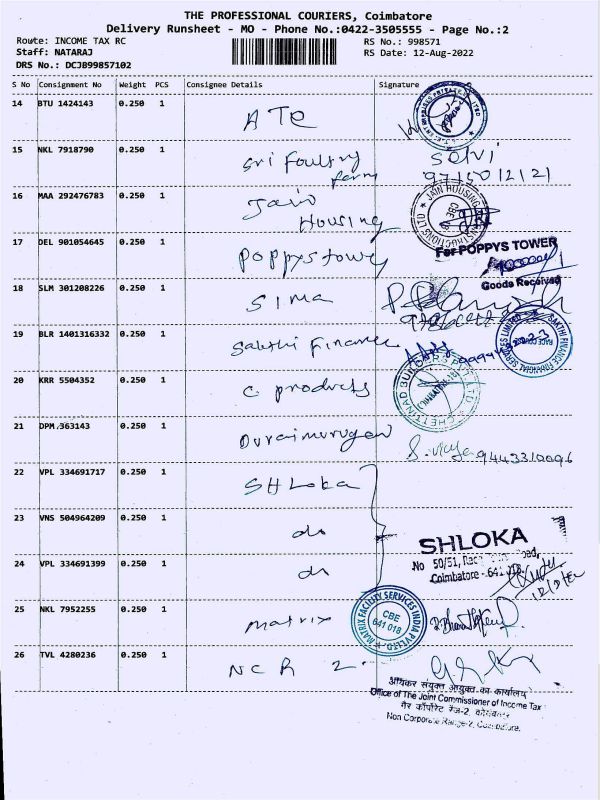 THE PROFESSIONAL COURIERS, Coimbatore
Delivery Runsheet - MO - Phone No.:0422-3505555 - Page No.:2
Route: INCOME TAX RC
RS No.: 998571
Staff: NATARAJ
RS Date: 12-Aug-2022
DRS No.: DCJ899857102
S No Consignment No Weight PCS Consignee Details Signature
14 BTU 1424143 0.250 1 ATE
15 NKL 7918790 0.250 1 Sri Poultry farm Selvi
16 MAA 292476783 0.250 1 Jain Housing
JAIN HOUSING
17 DEL 901054645 0.250 1 Poppys tower
For POPPYS TOWER
Goods Received
18 SLM 301208226 0.250 1 SIMA
19 BLR 1401316332 0.250 1 Sakthi Finance
SAKTHI FINANCE FINANCIAL SERVICES LIMITED
20 KRR 5504352 0.250 1 C products
CHETTINAD BUILDERS PVT LTD
21 DPM 363143 0.250 1 Duraimurugan S. 9443310096
22 VPL 334691717 0.250 1 SHLOKA
23 VNS 504964209 0.250 1 do
SHLOKA
No 50/51,
24 VPL 334691399 0.250 1 do
Coimbatore - 641
12/8/22
25 NKL 7952255 0.250 1 Matrix
MATRIX FACILITY SERVICES INDIA PVT LTD
CBE
641 018
26 TVL 4280236 0.250 1 NCR 2
आयकर संयुक्त आयुक्त का कार्यालय
Office of The Joint Commissioner of Income Tax
गैर कॉर्पोरेट रेंज-2, कोयंबतूर
Non Corporate Range-2, Coimbatore.